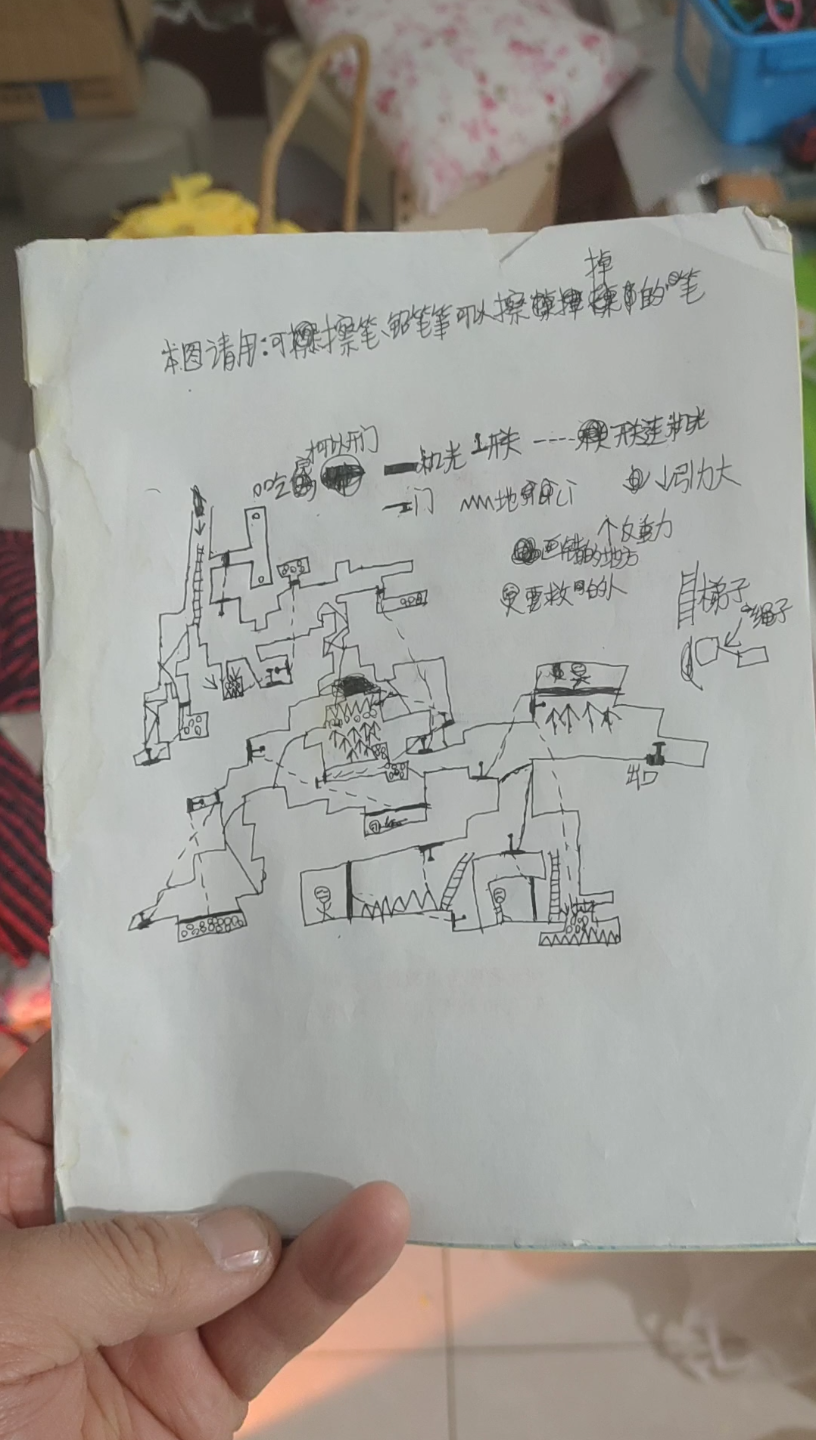 掉
本图请用:可擦笔、铅笔等可以擦的笔
可以开门
机光 开关 ---- 开关连机光
门 地 引力大
反重力
画错的地方
要救的人
梯子
绳子
出口